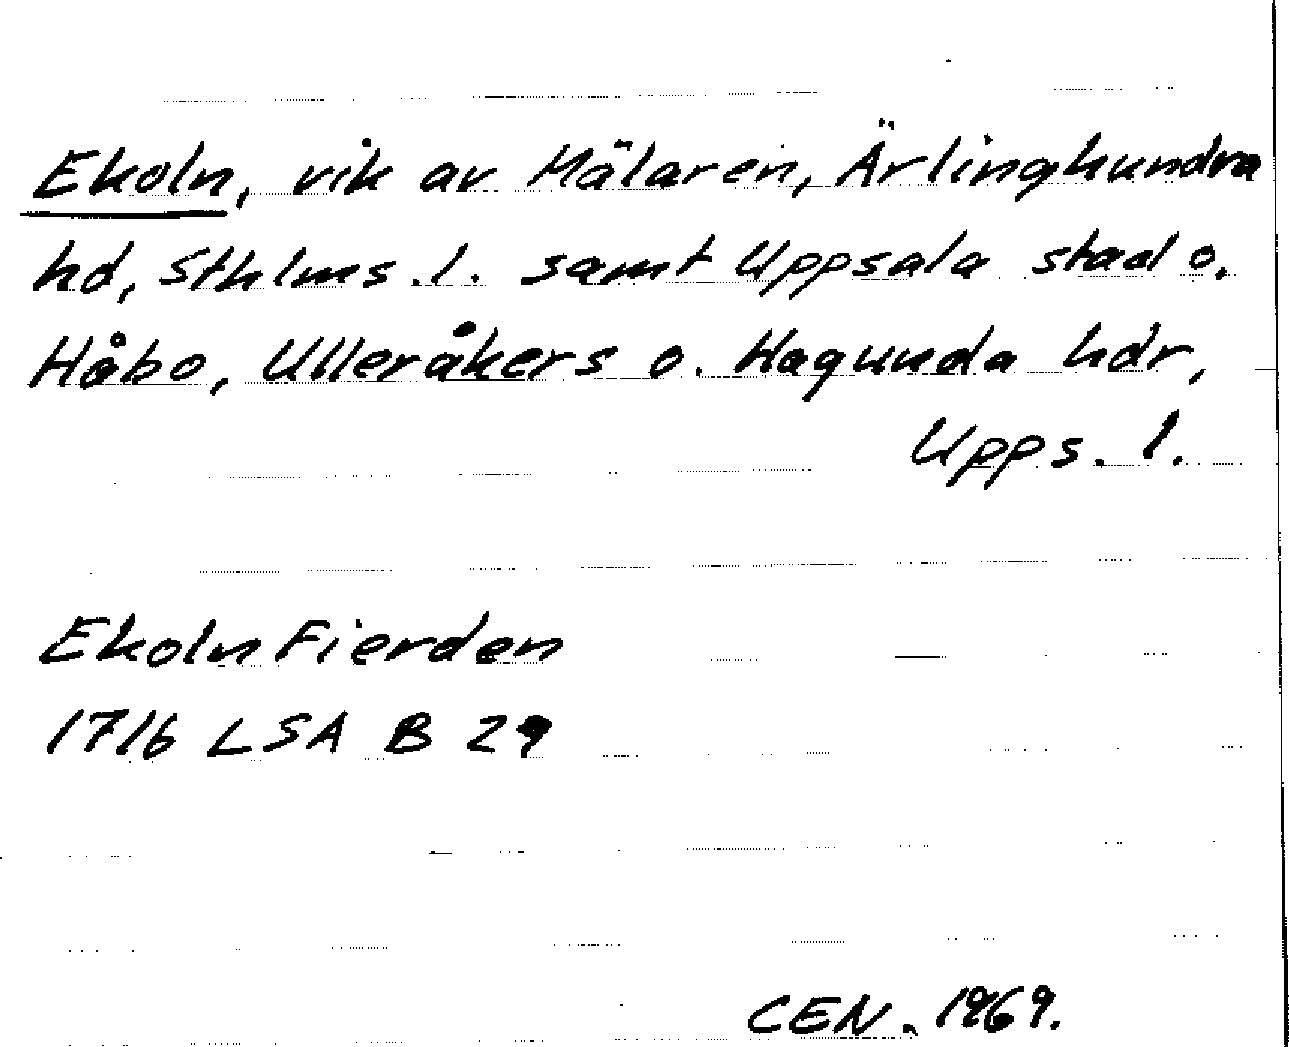 Ekoln, vik av Mälaren, Ärlinghundra
hd, Sthlms. l. samt Uppsala stad o.
Håbo, Ulleråkers o. Hagunda hdr,
Upps. l.
Ekoln Fierden
1716 LSA B 29
CEN. 1969.